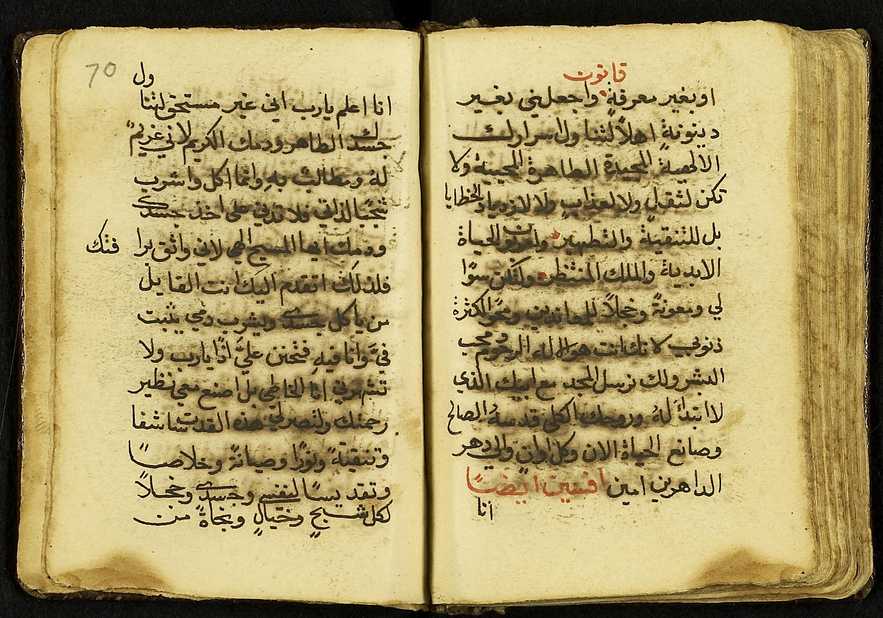 قانون
او بغير معرفةٍ واجعلني بغير
دينونةٍ اهلاً لتناول اسرارك
الالهية المجيدة الطاهرة المحييه ولا
تكن لثقلٍ ولا لعذابٍ ولا لازدياد الخطايا
بل للتنقية والتطهير وعربون الحياة
الابدية والملك المنتظر ولتكن سورًا
لي ومعونةً وخجلاً للمعاندين ومحو الكثرة
ذنوبي لانك انت هو الاله الرحوم ومحب
البشر ولك نرسل المجد مع ابيك الذي
لا ابتدآ لهُ وروحك الكلي قدسهُ الصالح
وصانع الحياة الان وكل اوانٍ والي دهر
الداهرين امين افشين ايضًا
انا
70
ول
انا اعلم يارب اني غير مستحق لتنا
جسدك الطاهر ودمك الكريم لاني غريمٌ
لهُ ومطالبٌ بهِ وانما اكل واشرب
لذاتي فلا تدني علي اخذ جسدك
ودمك ايها المسيح الهي لاني واثق برا
فتك
فلذلك اتقدم اليك انت القايل
من ياكل جسدي ويشرب دمي يثبت
فيَّ وانا فيهِ فتحنن عليَّ اذًا يارب ولا
تشهرني انا الخاطي بل اصنع معي نظير
رحمتك ولتصر لي هذه القدسات شفا
وتنقيةً ونورًا وصيانةً وخلاصًا
وتقديسًا لنفسي وجسدي وخجلاً
لكل شبحٍ وخيالٍ ونجاةً من